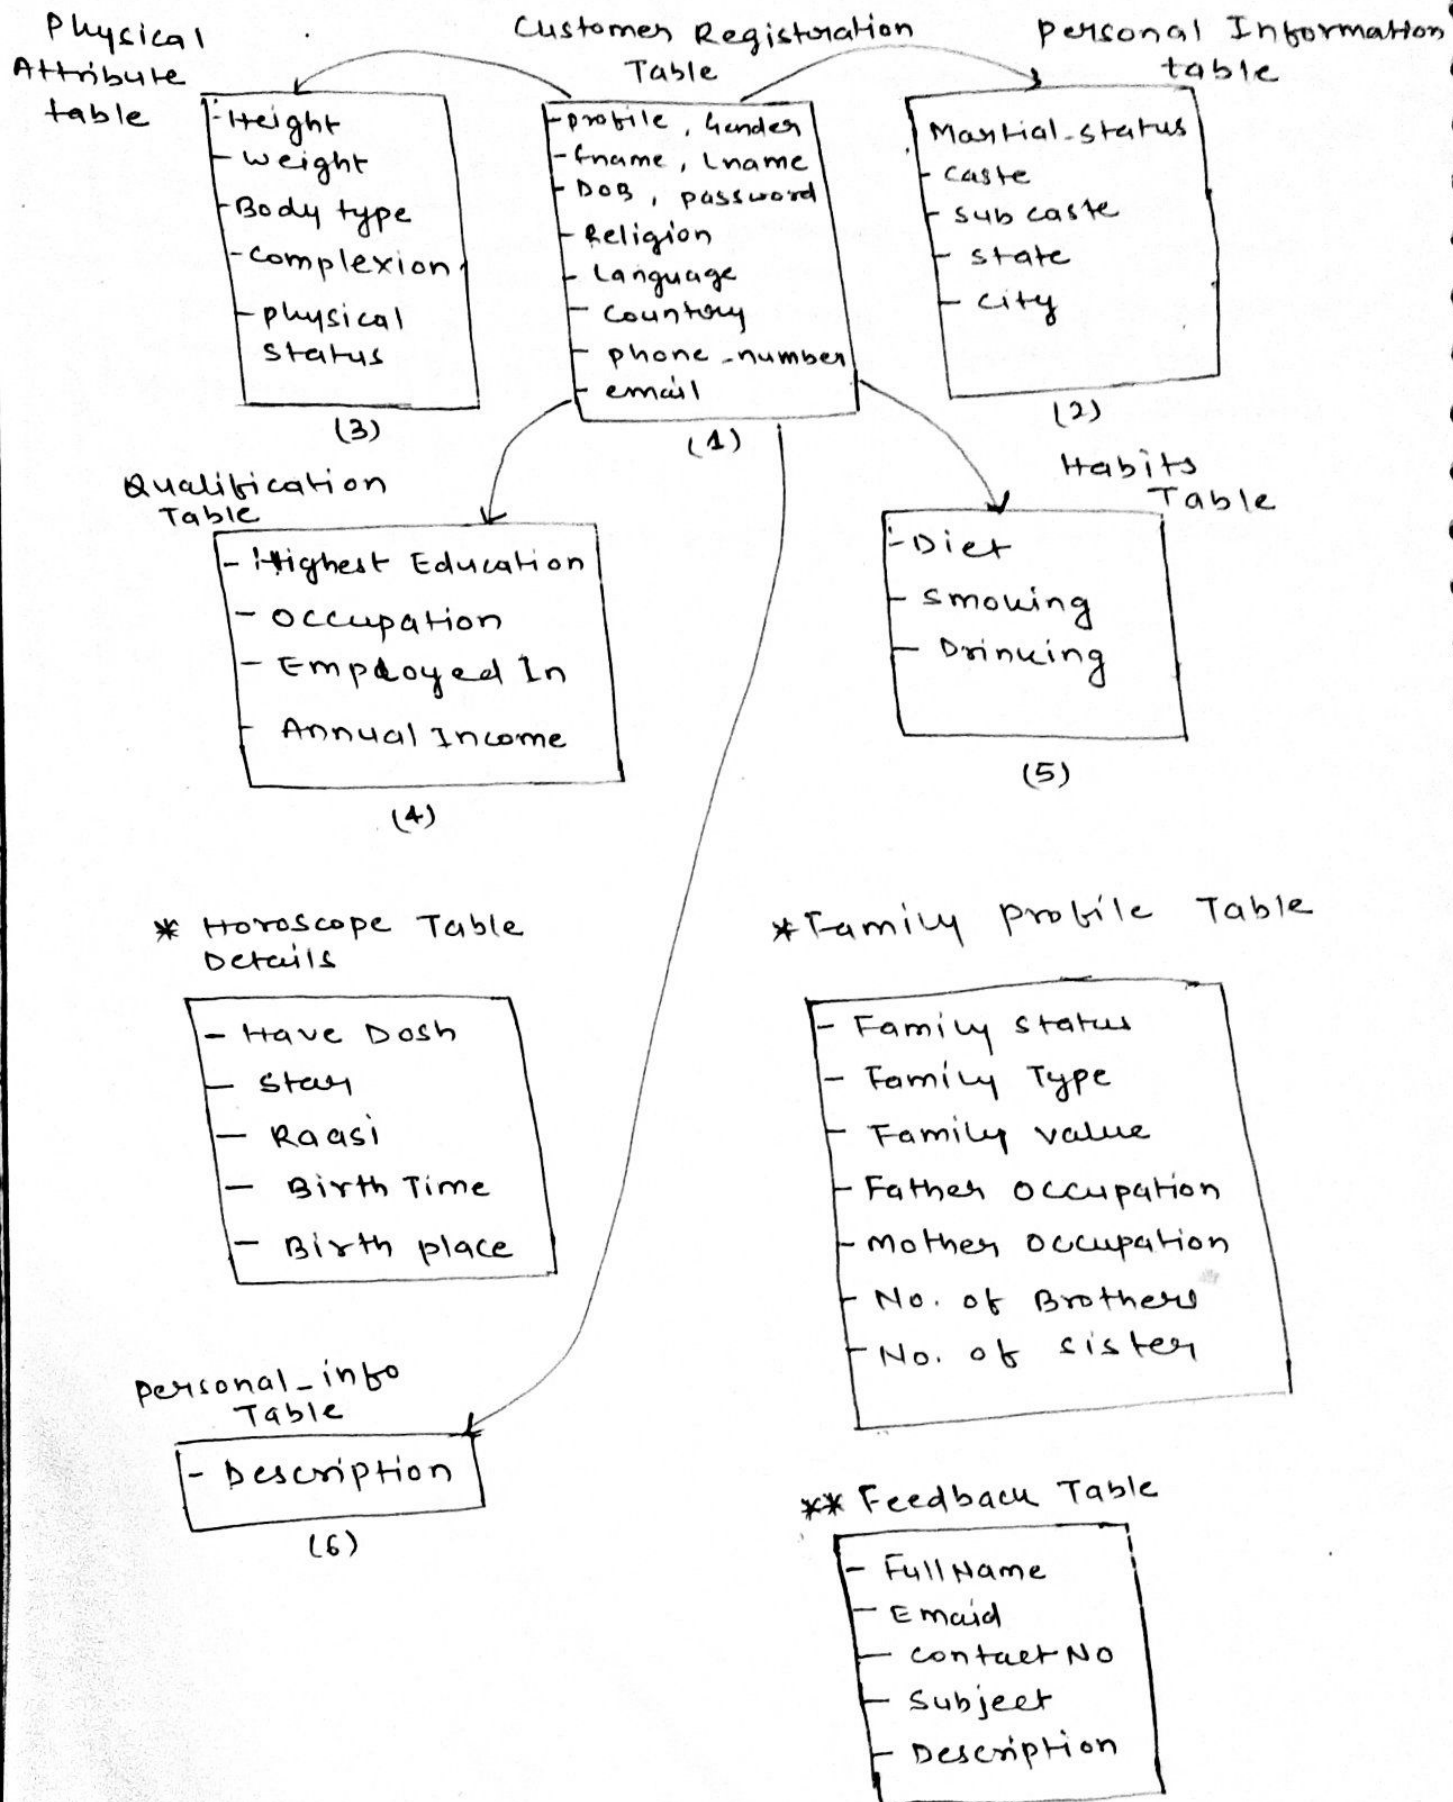 Physical
Attribute
table
- Height
- weight
- Body type
- complexion
- physical
status
(3)
Customer Registration
Table
- profile, Gender
- fname, Lname
- DOB, password
- Religion
- Language
- Country
- phone_number
- email
(1)
Personal Information
table
Martial_status
- caste
- sub caste
- state
- city
(2)
Qualification
Table
- Highest Education
- Occupation
- Employed In
- Annual Income
(4)
Habits
Table
- Diet
- Smoking
- Drinking
(5)
* Horoscope Table
Details
- Have Dosh
- Star
- Raasi
- Birth Time
- Birth place
* Family Profile Table
- Family status
- Family Type
- Family value
- Father occupation
- mother occupation
- No. of Brothers
- No. of sister
personal_info
Table
- Description
(6)
** Feedback Table
- Full Name
- Emaid
- contact No
- Subject
- Description